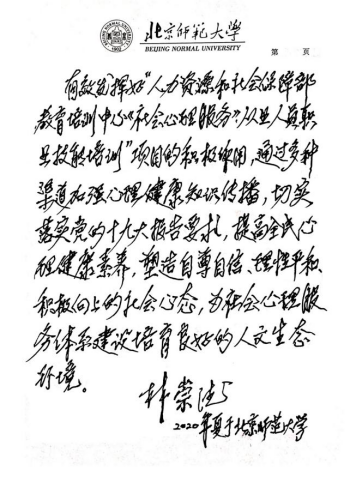 北京师范大学
BEIJING NORMAL UNIVERSITY
第 页
有效发挥好“人力资源和社会保障部
教育培训中心‘社会心理服务’从业人员职
业技能培训”项目的积极作用，通过多种
渠道加强心理健康知识传播，切实
落实党的十九大报告要求，提高全民心
理健康素养，塑造自尊自信、理性平和、
积极向上的社会心态，为社会心理服
务体系建设培育良好的人文生态
环境。
林崇德
2020年夏于北京师范大学